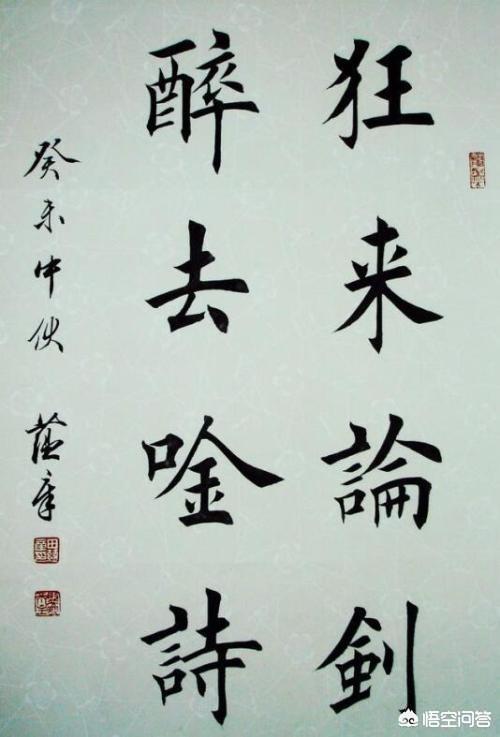 狂来論釗
醉去唫詩
癸未中伏 蕴章
悟空问答